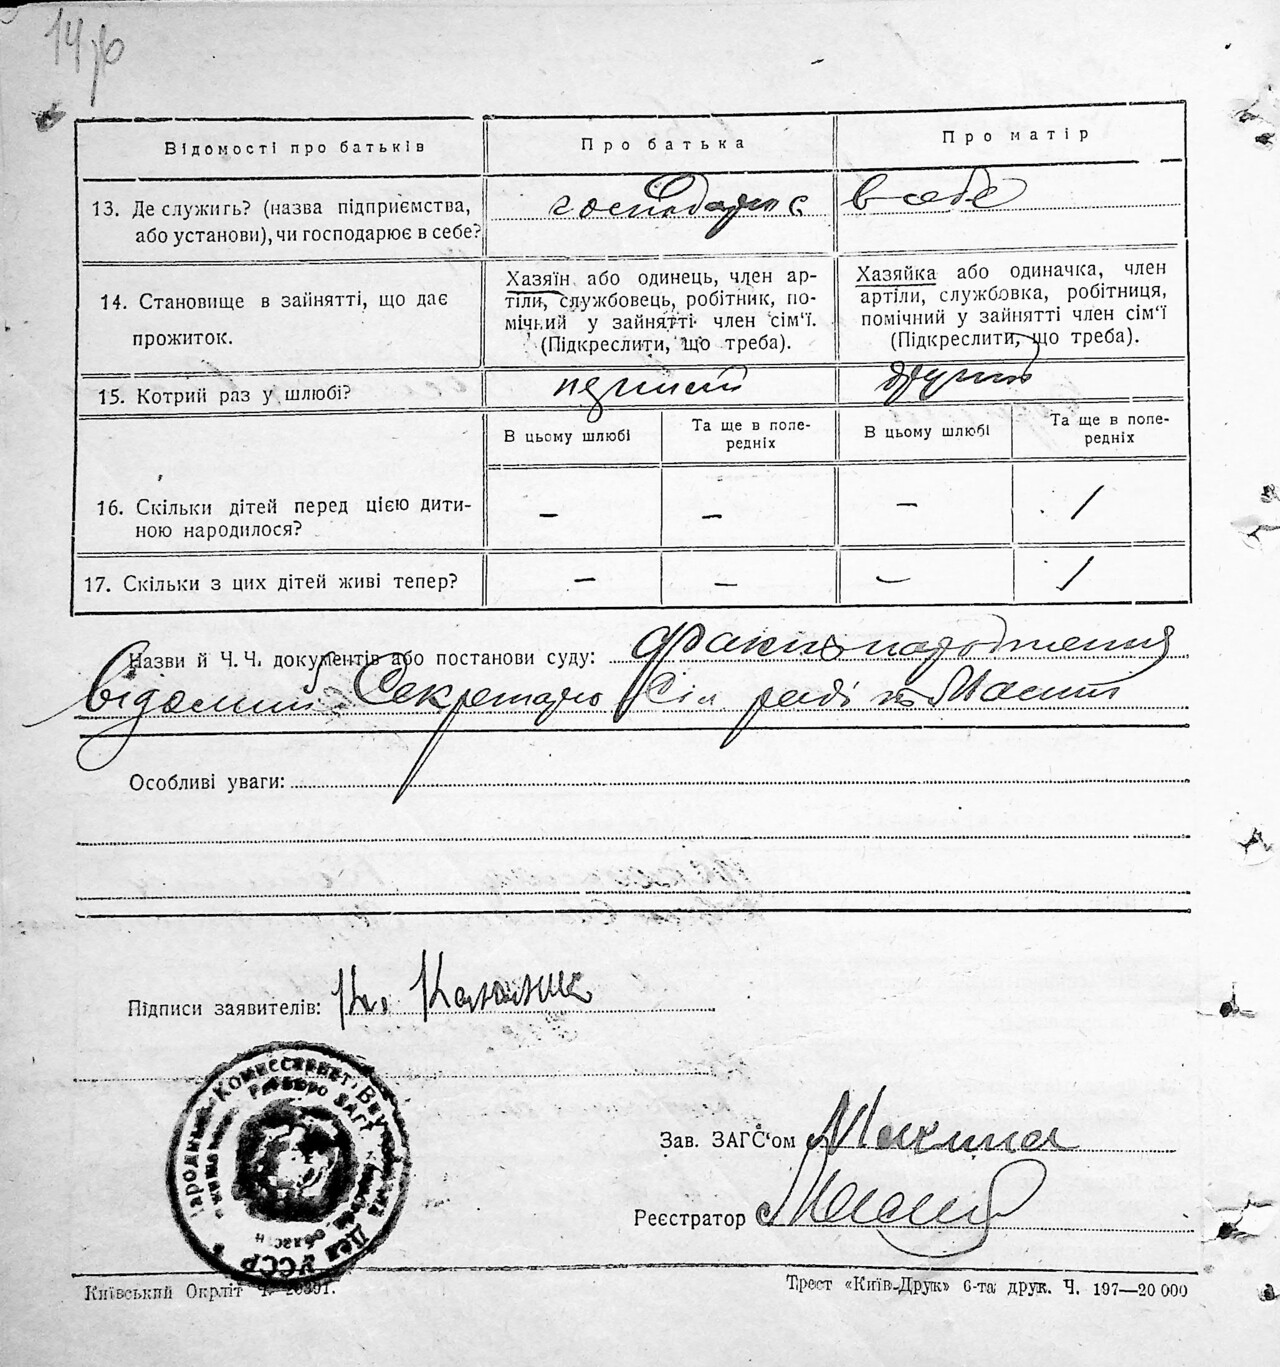 Відомості про батьків
Про батька
Про матір
13. Де служить? (назва підприємства, або установи), чи господарює в себе?
господарює
в себе
14. Становище в зайнятті, що дає прожиток.
Хазяїн або одинець, член ар-
тіли, службовець, робітник, по-
мічний у зайнятті член сім'ї.
(Підкреслити, що треба).
Хазяйка або одиначка, член
артіли, службовка, робітниця,
помічний у зайнятті член сім'ї
(Підкреслити, що треба).
15. Котрий раз у шлюбі?
перший
другий
В цьому шлюбі
Та ще в попе-
редніх
В цьому шлюбі
Та ще в попе-
редніх
16. Скільки дітей перед цією дити-
ною народилося?
–
–
–
/
17. Скільки з цих дітей живі тепер?
–
–
–
/
Назви й Ч. Ч. документів або постанови суду: факт народження
відомий Секретарю Сіл ради
Особливі уваги:
Підписи заявителів:
Народный Комиссариат Внутренних Дел УССР
ЗАГС
Зав. ЗАГС'ом
Реєстратор
Київський Окрліт Ч.
Трест «Київ-Друк» 6-та друк. Ч. 197—20 000